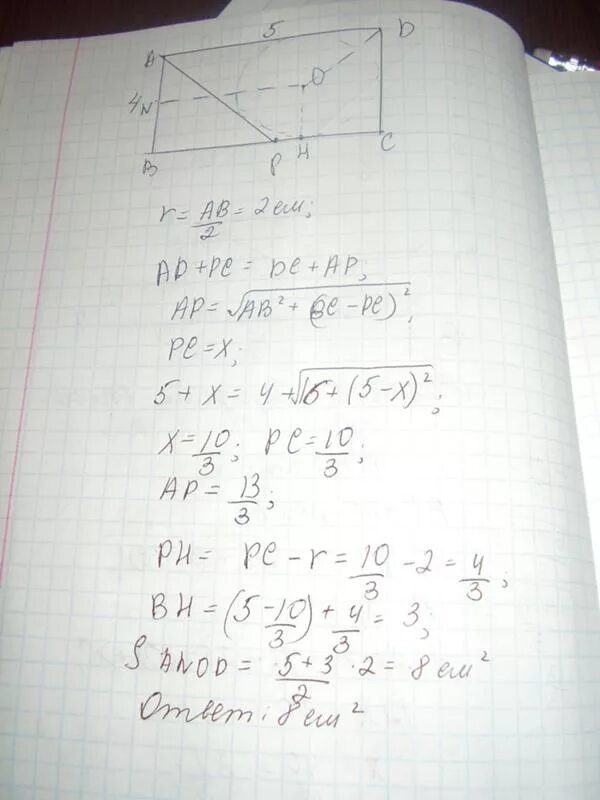 5
A
D
4
N
O
B
P
H
C
r = AB/2 = 2 см;
AD + PC = DC + AP;
AP = √(AB² + (BC - PC)²);
PC = x;
5 + x = 4 + √(16 + (5 - x)²);
x = 10/3; PC = 10/3;
AP = 13/3;
PH = PC - r = 10/3 - 2 = 4/3;
BH = (5 - 10/3) + 4/3 = 3;
S ANOD = (5 + 3)/2 · 2 = 8 см²
Ответ: 8 см²